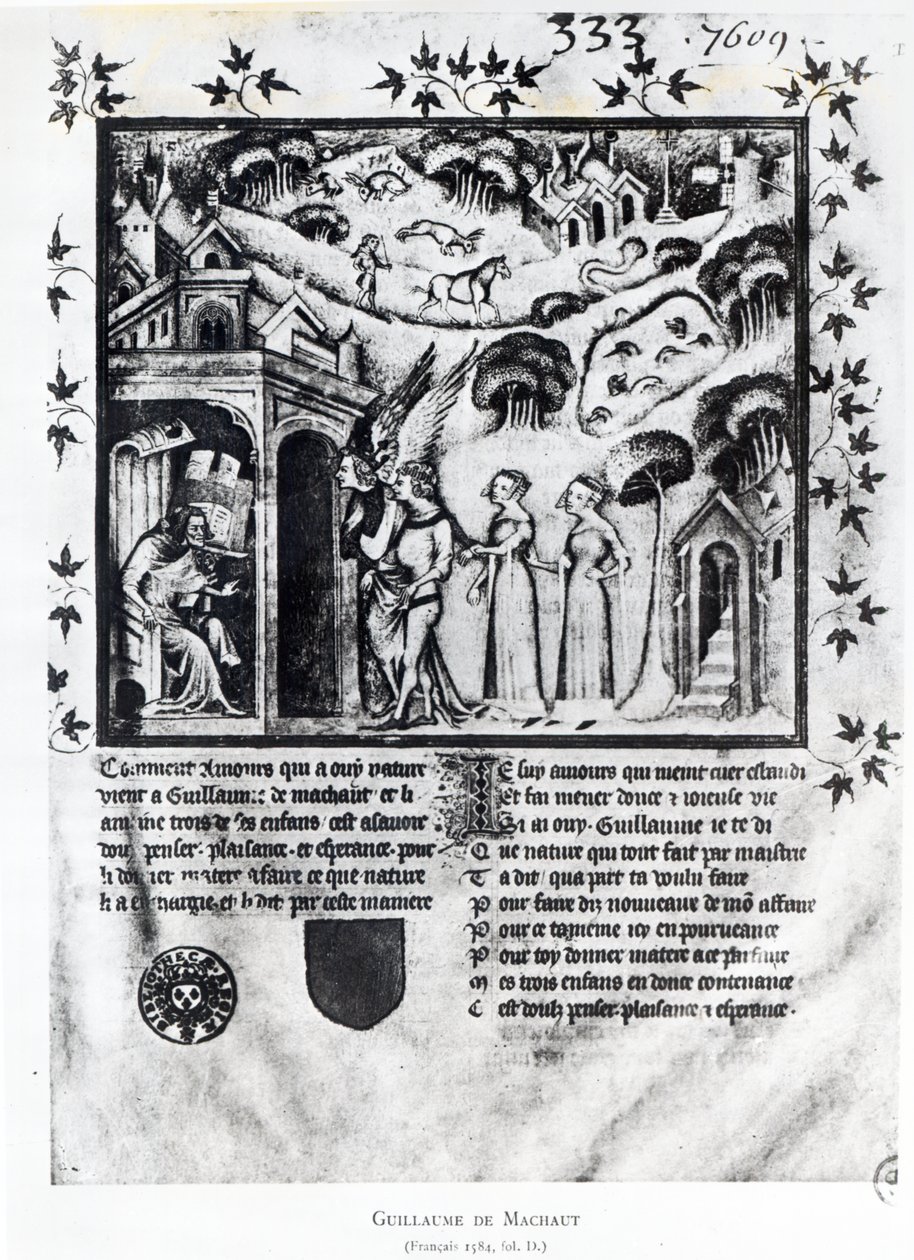 333 · 7609 ·
Comment Amours qui a ouy nature
vient a Guillaume de machaut et li
ameine trois de ses enfans cest asavoir
doux penser · plaisance · et esperance · pour
li donner matere afaire ce que nature
li a enchargie · et li dit par ceste maniere
Ie suy amours qui meint cuer esbaudi
Et fai mener douce et ioieuse vie
Si ai ouy · Guillaume ie te di
Que nature qui tout fait par maistrie
Ta dit qua part ta voulu faire
Pour faire diz nouueaux de mõ affaire
Pour ce tameine icy en pourueance
Pour toy donner matere a ce parfaire
Mes trois enfans en douce contenance
Cest doulz penser · plaisance et esperance ·
BIBLIOTHECAE REGIAE
GUILLAUME DE MACHAUT
(Français 1584, fol. D.)